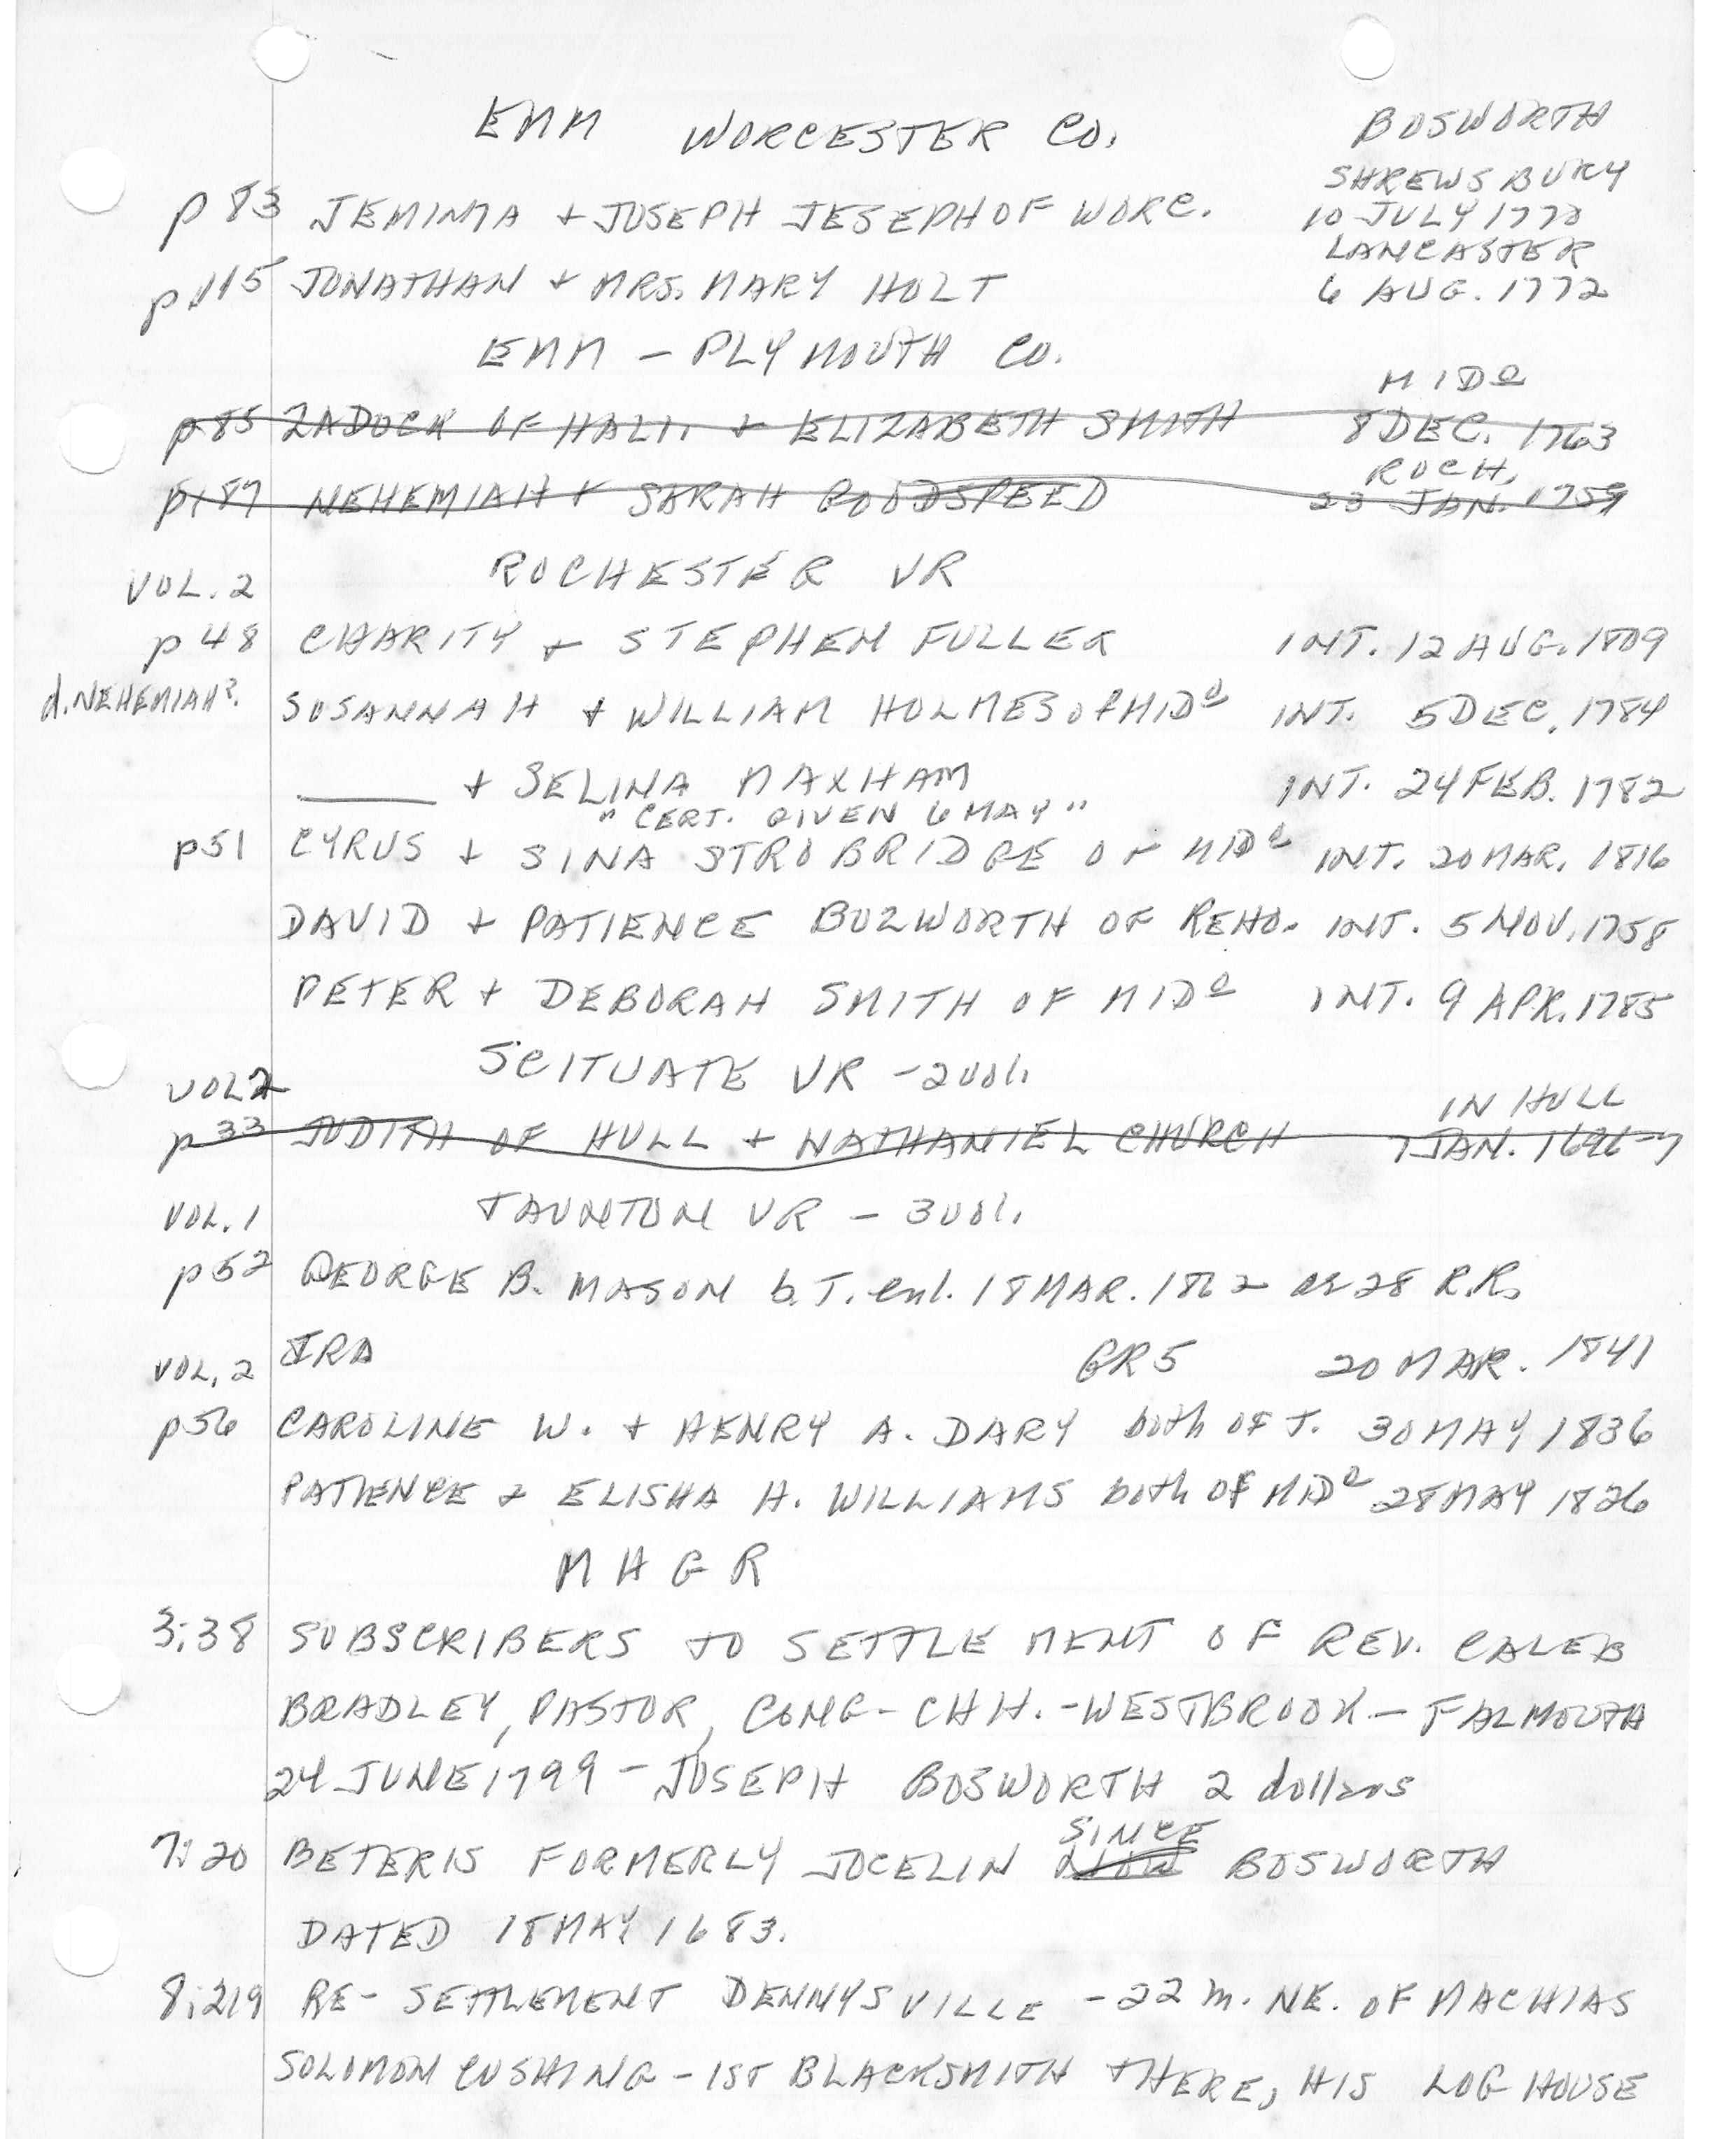 EMM WORCESTER CO. BOSWORTH
SHREWSBURY
p 83 JEMIMA + JOSEPH JESEPH OF WORC. 10 JULY 1770
LANCASTER
p 115 JONATHAN + MRS. MARY HOLT 6 AUG. 1772
EMM - PLYMOUTH CO.
MIDO
p 85 ZADOCK OF HALI. + ELIZABETH SMITH 8 DEC. 1763
ROCH.
p 87 NEHEMIAH + SARAH GOODSPEED 23 JAN. 1759
VOL. 2 ROCHESTER VR
p 48 CHARITY + STEPHEN FULLER INT. 12 AUG. 1809
d. NEHEMIAH? SUSANNAH + WILLIAM HOLMES OF MIDO INT. 5 DEC. 1784
____ + SELINA MAXHAM INT. 24 FEB. 1782
"CERT. GIVEN 6 MAY"
p51 CYRUS + SINA STROBRIDGE OF MIDO INT. 20 MAR. 1816
DAVID + PATIENCE BUZWORTH OF REHO. INT. 5 NOV. 1758
PETER + DEBORAH SMITH OF MIDO INT. 9 APR. 1785
SCITUATE VR - 2 vol.
VOL 2 IN HULL
p 33 JUDITH OF HULL + NATHANIEL CHURCH 7 JAN. 1696-7
VOL. 1 TAUNTON VR - 3 vol.
p 52 GEORGE B. MASON b. T. enl. 18 MAR. 1862 ae 28 R.R.
VOL. 2 IRA GR5 20 MAR. 1841
p56 CAROLINE W. + HENRY A. DARY both OF T. 30 MAY 1836
PATIENCE & ELISHA H. WILLIAMS both OF MIDO 28 MAY 1826
M H G R
3:38 SUBSCRIBERS TO SETTLEMENT OF REV. CALEB
BRADLEY, PASTOR, CONG - CHH. - WESTBROOK - FALMOUTH
24 JUNE 1799 - JOSEPH BOSWORTH 2 dollars
SINCE
7:20 BETERIS FORMERLY JOCELIN BOSWORTH
DATED 18 MAY 1683.
8:219 RE- SETTLEMENT DENNYSVILLE - 22 m. NE. OF MACHIAS
SOLOMON CUSHING - 1ST BLACKSMITH THERE, HIS LOG HOUSE